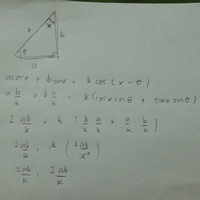 x
k
b
θ
a
a cos x + b sin x = k cos (x - θ)
a b/k + b a/k = k (cos x cos θ + sin x sin θ)
2 ab/k = k ( b/k a/k + a/k b/k )
2 ab/k = k ( 2ab/k² )
2ab/k = 2ab/k